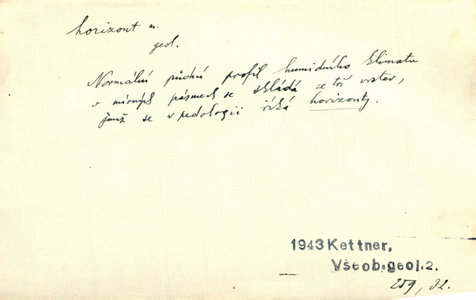 horizont m.
geol.
Normální půdní profil humidního klimatu
v mírných pásmech se skládá ze tří vrstev,
jimž se v pedologii říká horizonty.
1943 Kettner,
Všeob.geol.2.
259, 32.